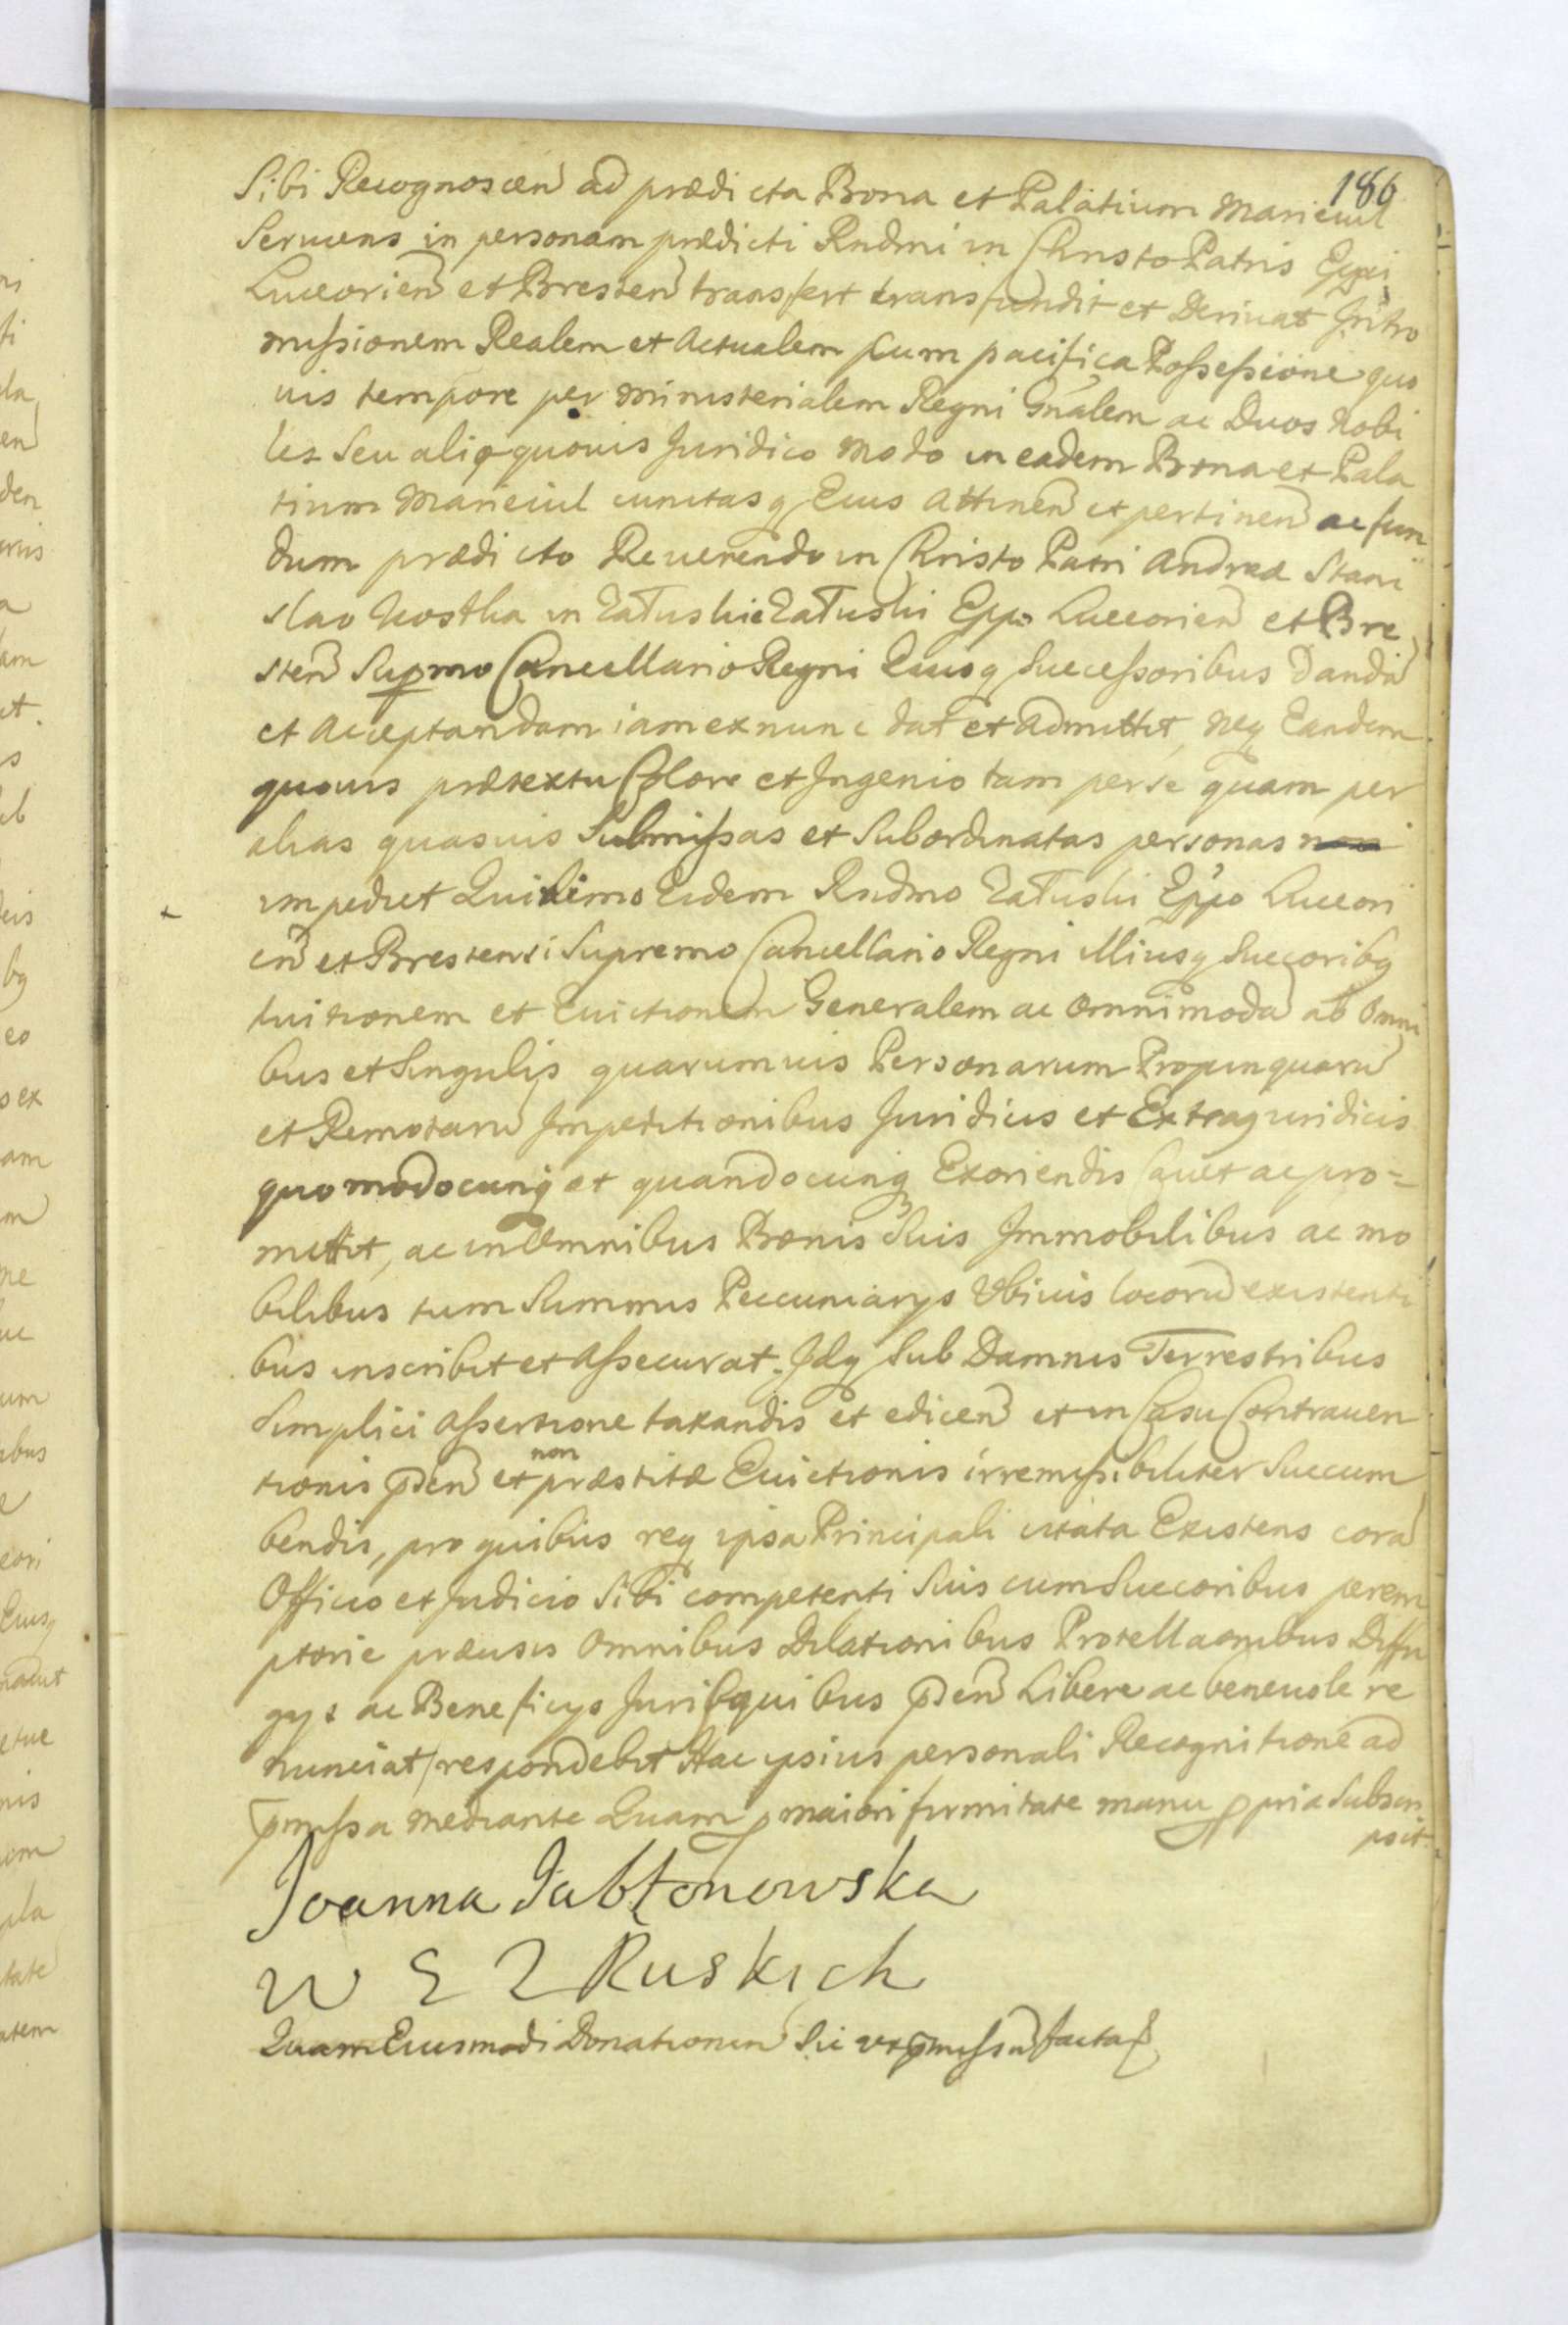 186
Sibi Recognoscen ad prædicta Bona et Palatium Marieiul
Seruiens in personam prædicti Rndmi in Christo Patris Eppi
Luceorien et Bresten transfert transfundit et Deriuat Intro
missionem Realem et Actualem cum pacifica Possessione quo
uis tempore per Ministerialem Regni Gnalem ac Duos Nobi
les Seu alio quouis Juridico modo in eadem Bona et Pala
tium Marieiul cunctasq Eius Attinen et pertinen ac fun
dum prædicto Reuerendo in Christo Patri Andreæ Stani
slao Kostka in Załuskie Załuski Eppo Luceorien et Bre
sten Supmo Cancellario Regni Eiusq Successoribus Danda
et Acceptandam iam ex nunc dat et admittit, neq Eandem
quouis prætextu Colore et Ingenio tam per se quam per
alias quasuis Submissas et Subordinatas personas non
impediet Quinimo Eidem Rndmo Załuski Eppo Luceori
en et Brestensi Supremo Cancellario Regni Illiusq Succoribq
tuitionem et Euictionem Generalem ac omnimoda ab Omni
bus et Singulis quarumuis Personarum Propinquaru
et Remotaru Impetitionibus Juridicis et Extrajuridicis
quomodocunq et quandocunq Exoriendis Cauet ac pro=
mittit, ac in Omnibus Bonis Suis Immobilibus ac mo
bilibus tum Summis Peccuniarys Vbiuis locoru existenti
bus inscribit et Assecurat. Idq Sub Damnis Terrestribus
Simplici Assertione taxandis et edicen et in Casu Contrauen
tionis pden et non præstitæ Euictionis irremissibiliter Succum
bendis, pro quibus req ipsa Principali citata Existens cora
Officio et Judicio Sibi competenti Suis cum Succoribus perem
ptorie præuisis Omnibus Dilationibus Protellaonibus Diffu
gys ac Beneficys Juris quibus pden Libere ac beneuole re
nunciat respondebit Hac ipsius personali Recognitione ad
pmissa mediante Quam p maiori firmitate manu ppria Subscri
psit.
Joanna Jabłonowska
W E Z Ruskich
Quam Eiusmodi Donationem Sic vt pmissu facta